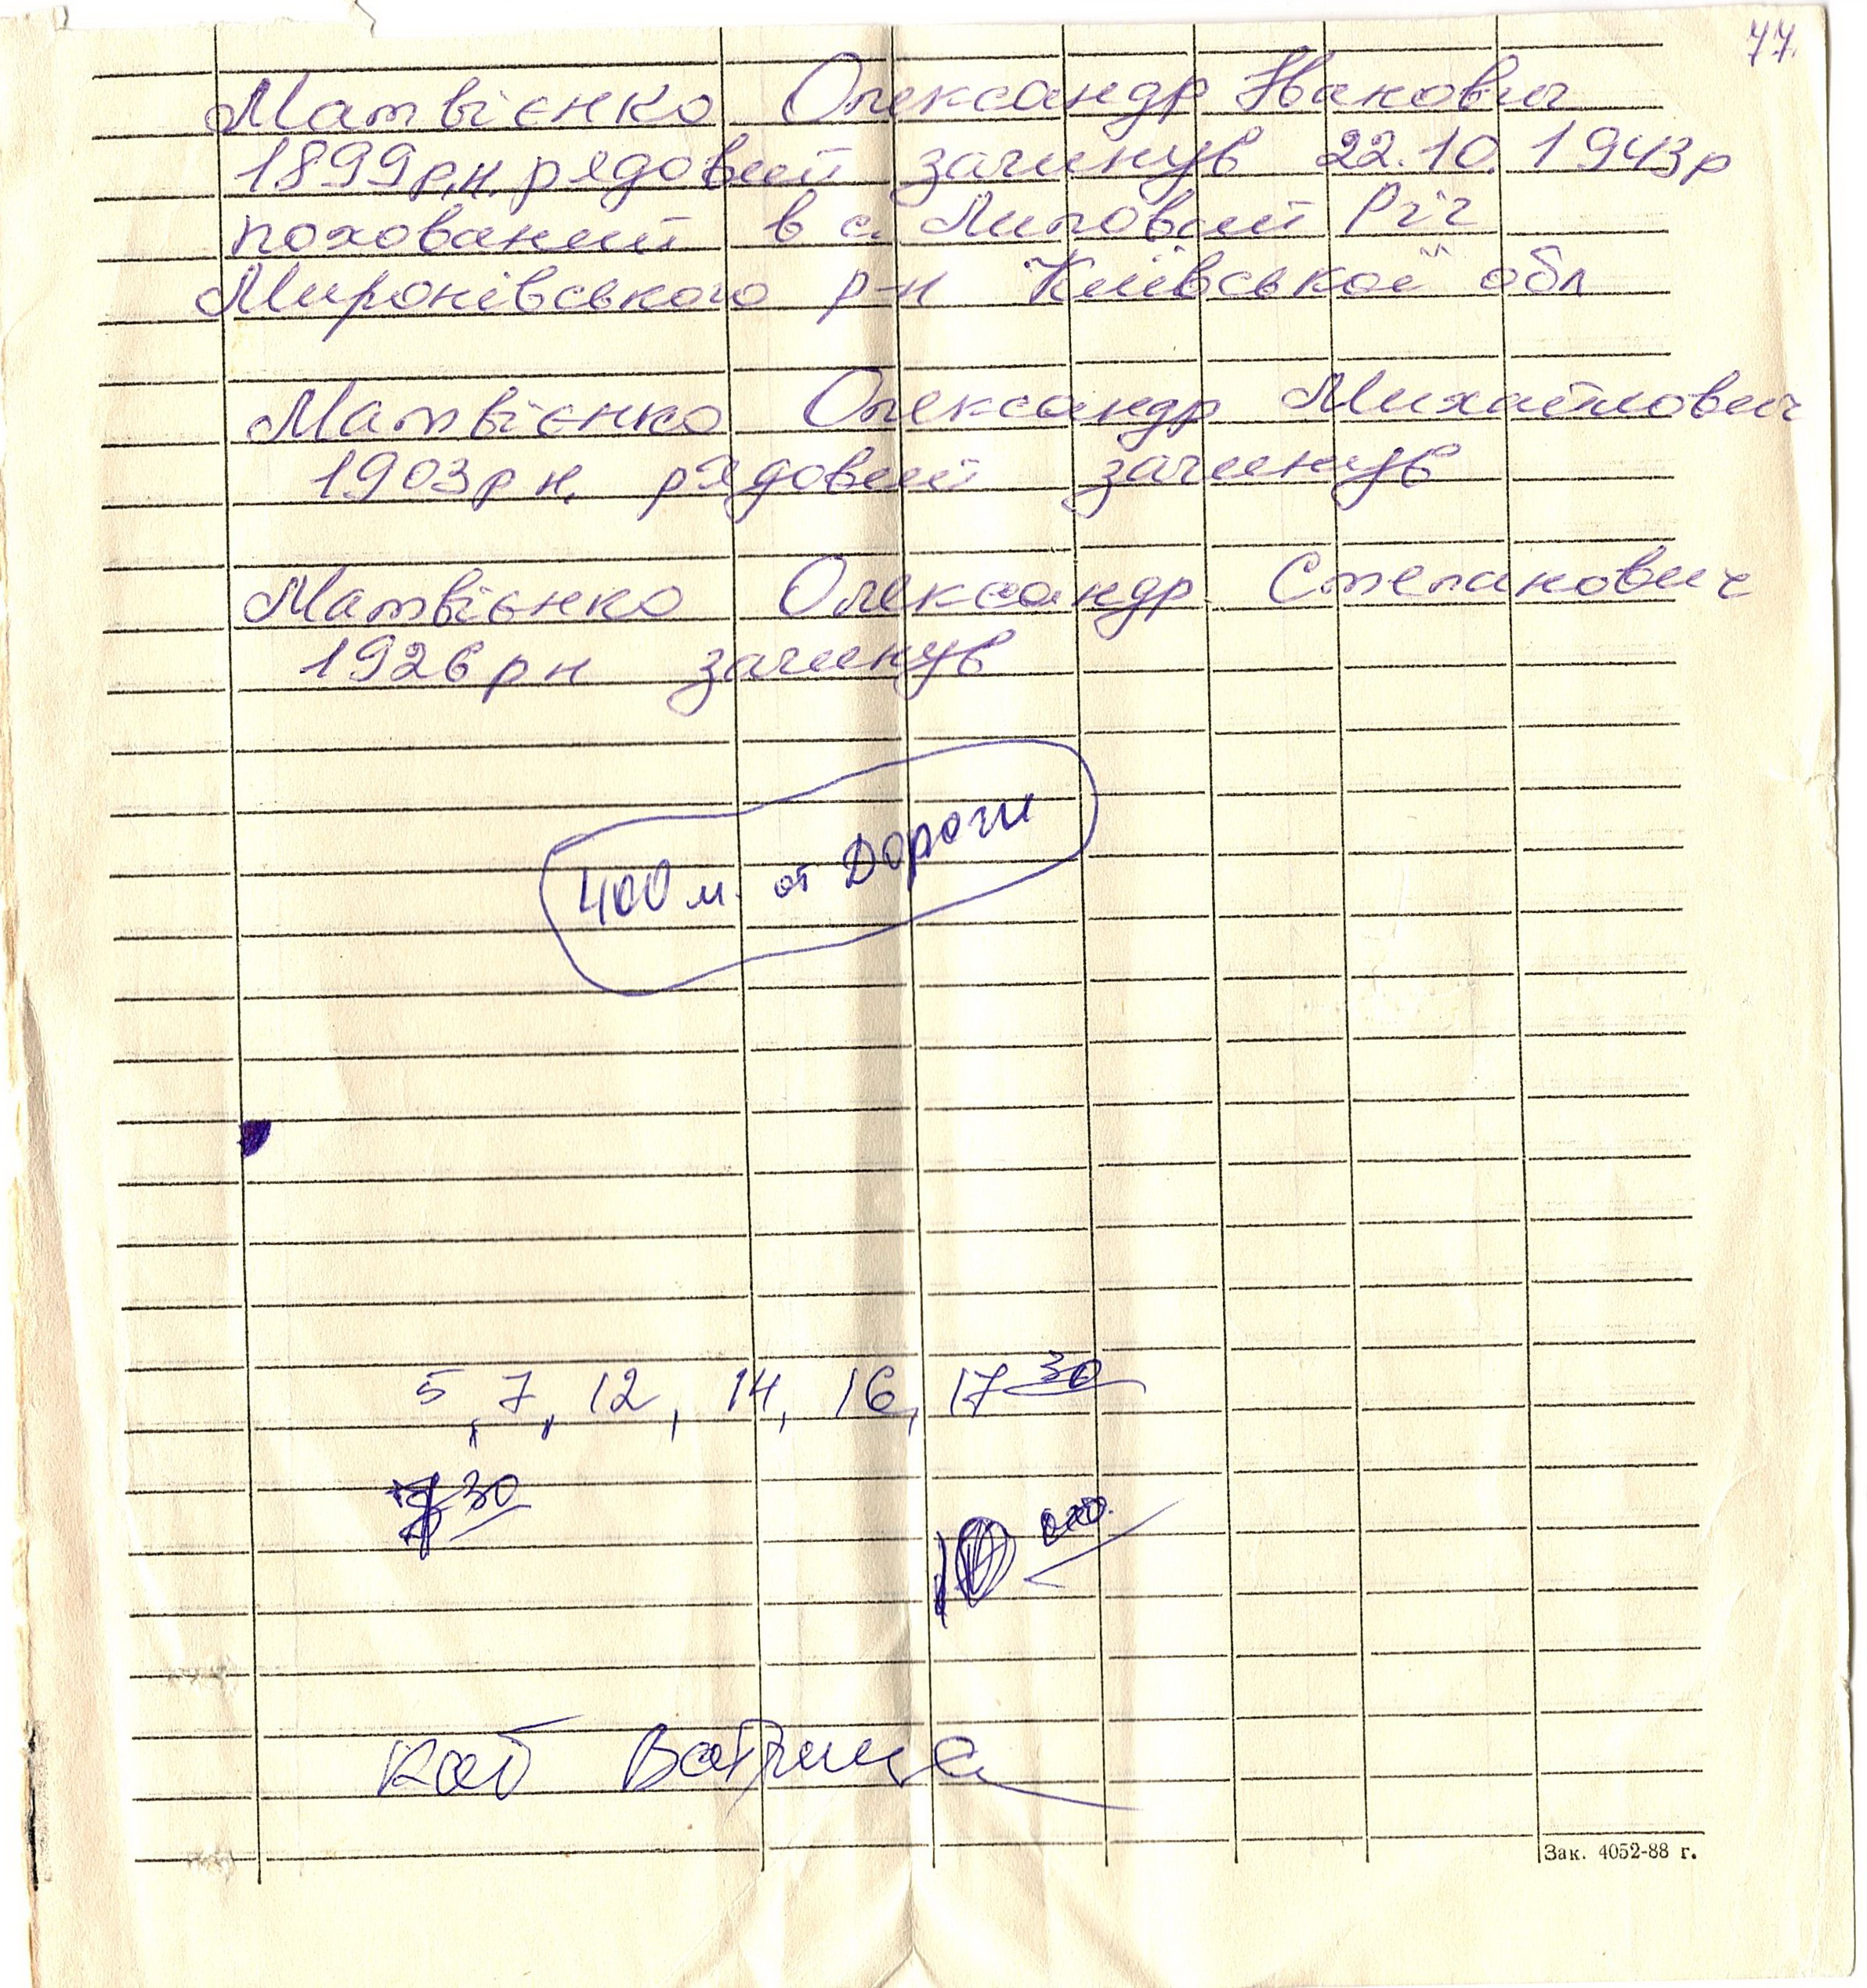 77.
Матвієнко Олександр Іванович
1899р.н. рядовий загинув 22.10.1943р
похований в с. Липовий Ріг
Миронівського р-н Київської обл
Матвієнко Олександр Михайлович
1903р н. рядовий загинув
Матвієнко Олександр Степанович
1926 р н загинув
400 м. от Дороги
5, 7, 12, 14, 16, 17 30
30
10
каб
Зак. 4052-88 г.